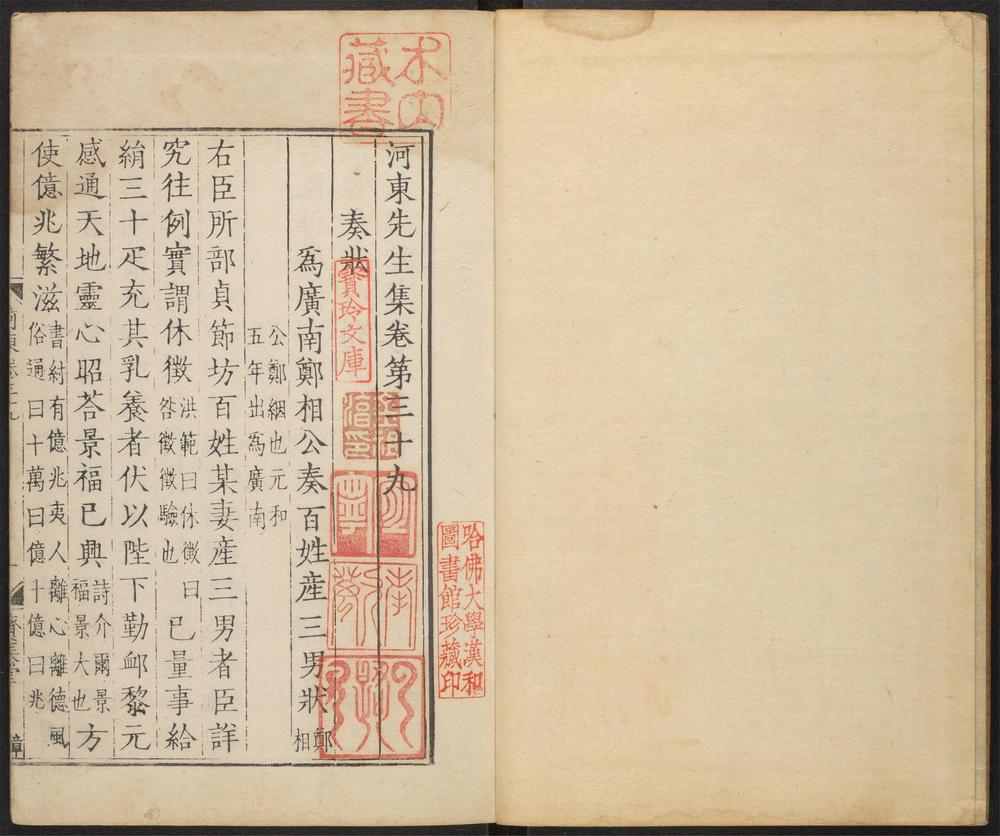 河東先生集卷第三十九
奏狀
爲廣南鄭相公奏百姓産三男狀鄭相
公鄭絪也元和
五年出爲廣南
右臣所部貞節坊百姓某妻産三男者臣詳
究往例實謂休徵洪範曰休徵曰咎徵徵驗也已量事給
絹三十疋充其乳養者伏以陛下勤䘏黎元
感通天地靈心昭荅景福已興詩介爾景福景大也方
使億兆繁滋書紂有億兆夷人離心離德風俗通曰十萬曰億十億曰兆
木內
藏書
寶玲文庫
哈佛大學漢和
圖書館珍藏印